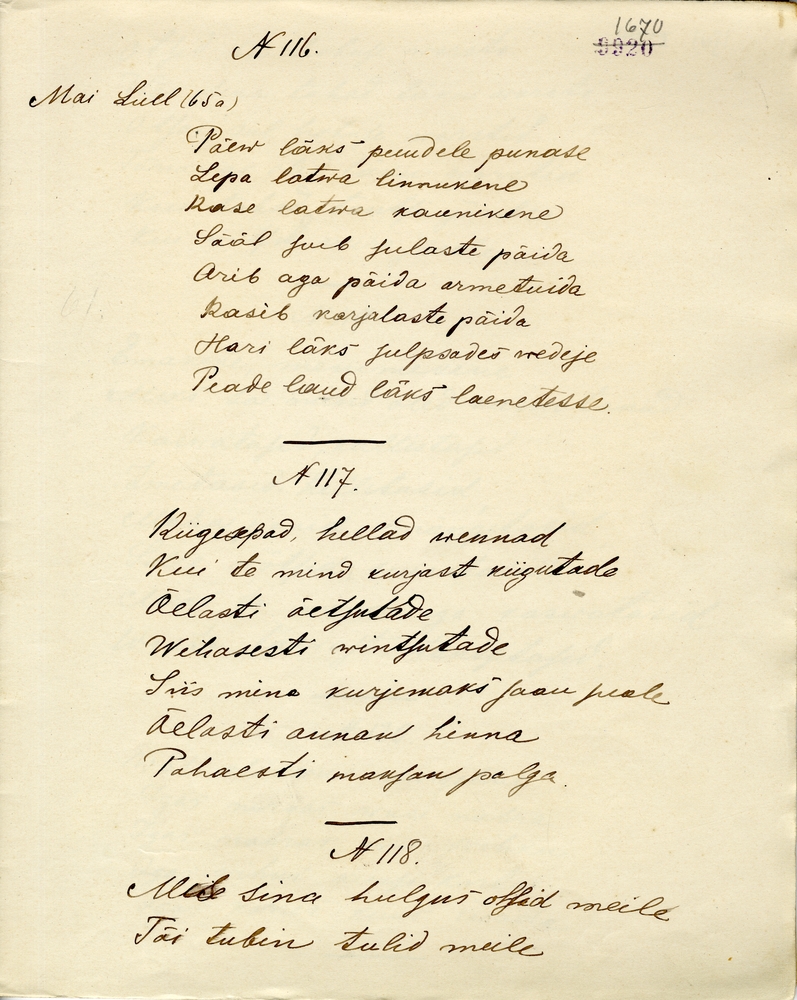 N 116.
1670
9920
Mai Lüll (65 a)
Päew läks puudele punase
Lepa latwa linnukene
Kase latwa kaunikene
Sääl suib sulaste päida
Arib aga päida armetuida
Kasib karjalaste päida
Hari läks sulpsades wedeje
Peade laud läks laenetesse.
N 117.
Kiigesepad, hellad wennad
Kui te mind kurjast kiigutade
Õelasti õetsutade
Wihasesti wintsutade
Siis mina kurjemaks saan peale
Õelasti annan hinna
Pahaesti maksan palga.
N 118.
sina hulgus olid meile
Täi tubin tulid meile